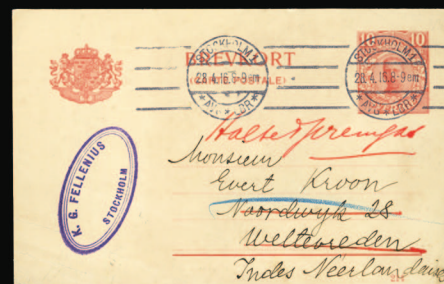 BREVKORT
(CARTE POSTALE)
10 10
STOCKHOLM 1
28.4.16.6-9em
*AVG*LBR*
STOCKHOLM 1
28.4.16.6-9em
*AVG*LBR*
K. G. FELLENIUS
STOCKHOLM
Monsieur
Evert Kroon
Noordwyk 28
Weltevreden
Indes Neerlandaises